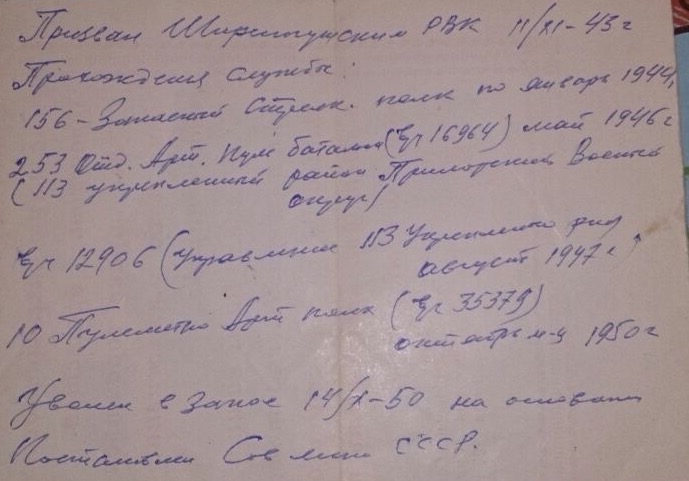 Призван Ширингушским РВК 11/XI-43 г
Прохождения службы:
156 - Запасный Стрелк. полк по январь 1944,
253 Отд. Арт. Пул батальон (в/ч 16964) май 1946 г
(113 укрепленный район Приморский Военный
округ)
в/ч 12906 (управление 113 Укрепленно рио
август 1947 г,
10 Пулеметно Арт полк (в/ч 35379)
октябрь м-ц 1950 г
Уволен в запас 14/X-50 на основани
Постановлен Сов мин СССР.